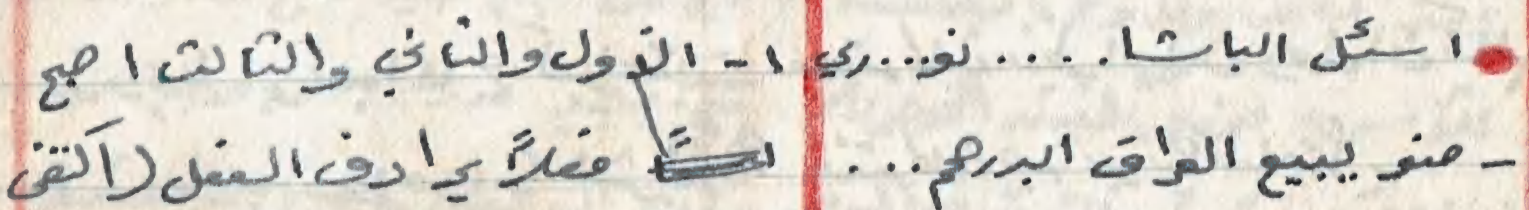 اسئل الباشا.... نو...ري ١- الأول والثاني والثالث اصبح
- منو يبيع العراق ابدرهم... فعلاً يرادف الفعل (اكتفى